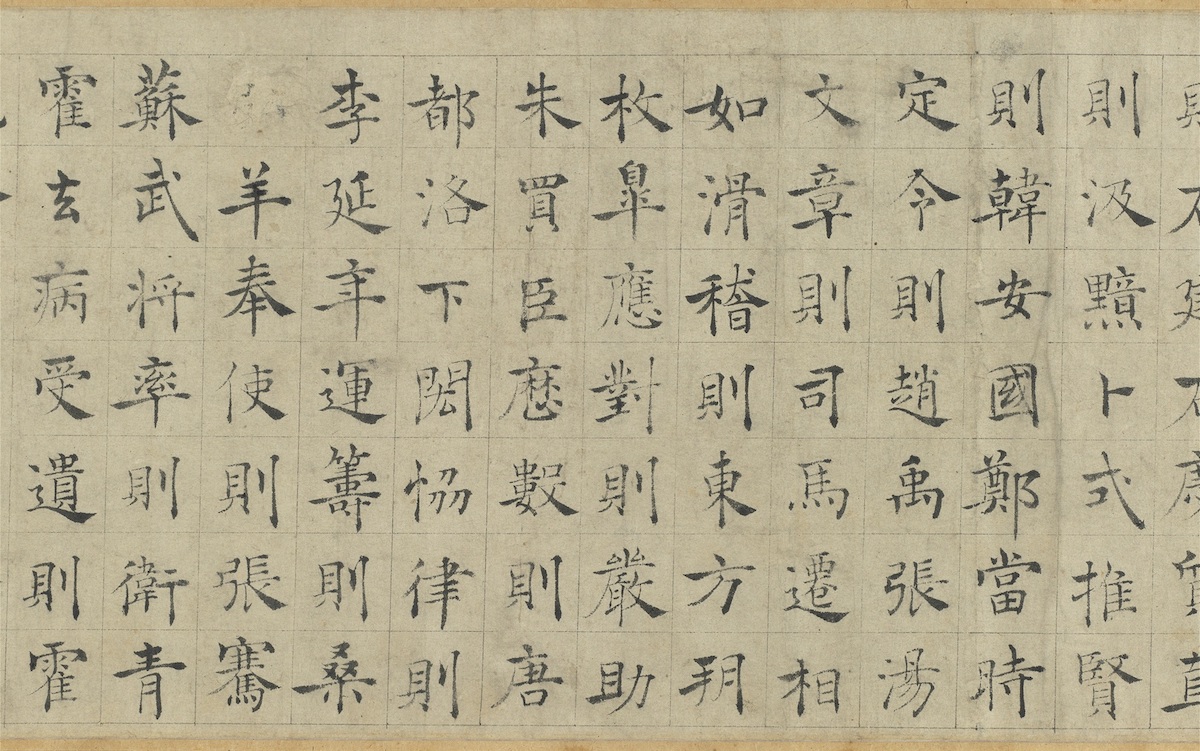 則汲黯卜式推賢
則韓安國鄭當時
定令則趙禹張湯
文章則司馬遷相
如滑稽則東方朔
枚皐應對則嚴助
朱買臣厯數則唐
都洛下閎恊律則
李延年運籌則桑
羊奉使則張騫
蘇武将率則衛青
霍去病受遺則霍